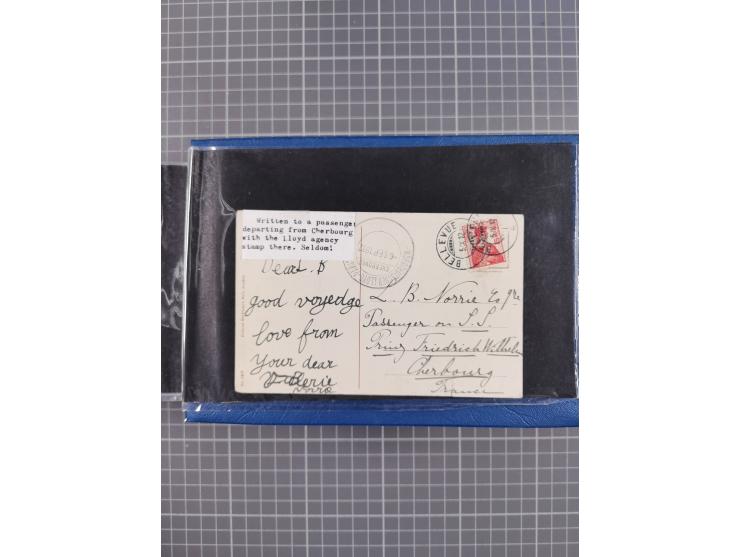 Written to a passenger
departing from Cherbourg
with the Lloyd agency
stamp there. Seldom!
Dear B
good voyedge
love from
Your dear
Valerie
L. B. Norrie Esqre
Passenger on S.S.
Prinz Friedrich Wilhelm
Cherbourg
France
BELLEVUE
CHERBOURG